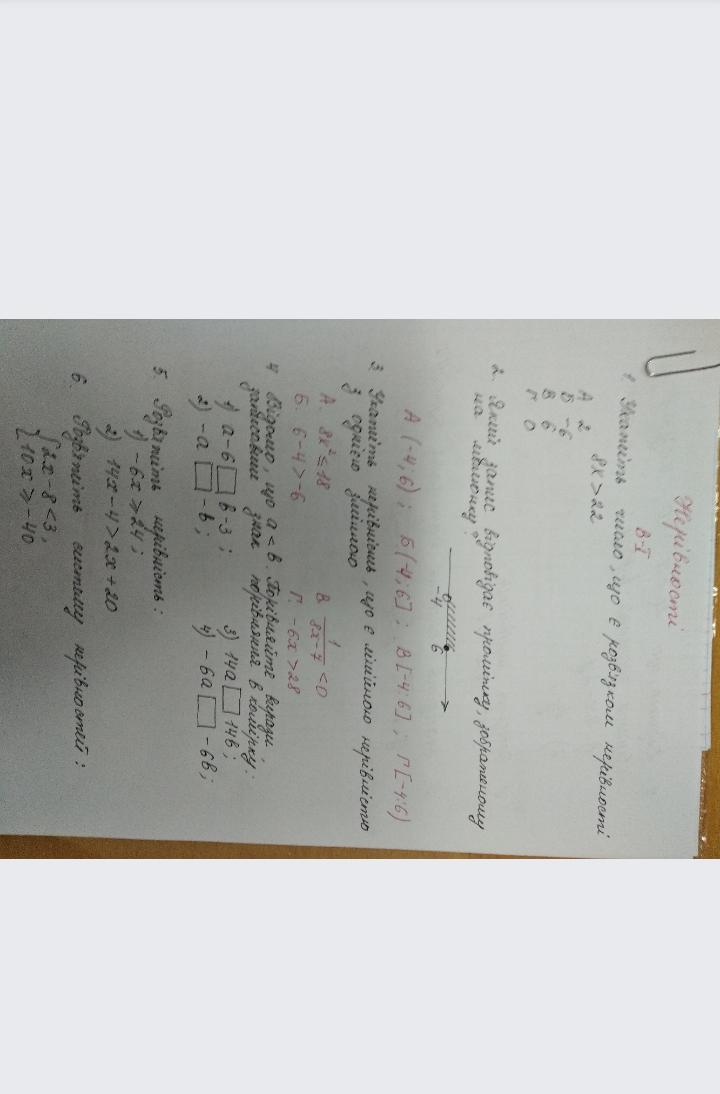 Нерівності
В-І
1 Укажіть число, що є розв'язком нерівності
8x > 22
А 2
Б -6
В 6
Г 0
2. Який запис відповідає проміжку, зображеному
на малюнку?
-4 6
А (-4; 6) ; Б (-4; 6] ; В [-4; 6] ; Г [-4; 6)
3. Укажіть нерівність, що є лінійною нерівністю
з однією змінною
А. 8x² ≤ 18 В. 1/(8x-7) < 0
Б. 6-4 > -6 Г. -6x > 28
4 Відомо, що a < b. Порівняйте вирази,
записавши знак порівняння в комірку:
1) a-6 □ b-3 ; 3) 14a □ 14b ;
2) -a □ -b ; 4) -6a □ -6b ;
5. Розв'яжіть нерівність :
1) -6x ≥ 24 ;
2) 14x-4 > 2x+20
6. Розв'яжіть систему нерівностей :
{ 2x-8 < 3,
10x ≥ -40